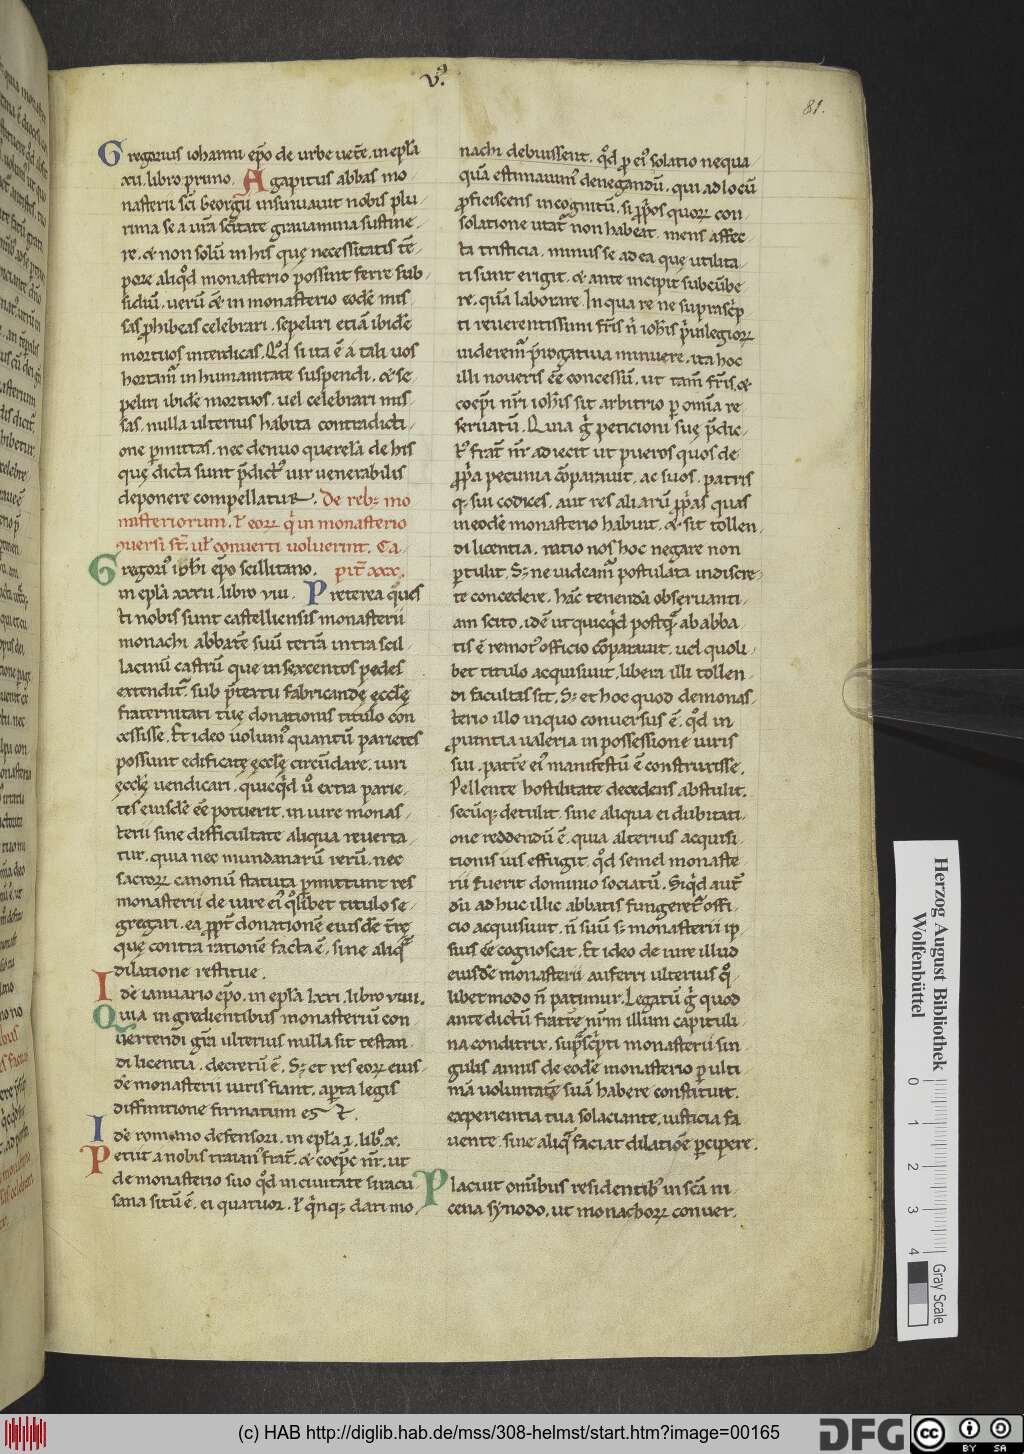 v.
81.
Gregorius iohanni ep̄o de urbe uet̄e. in epl̄a
xii. libro primo. Agapitus abbas mo
nasterii sc̄i Georgii insinuauit nobis plu
rima se a ur̄a sc̄itate grauamina sustine
re. & non solū in his quę necessitatis tē
pore aliq̇d monasterio possint ferre sub
sidiū. uerū &̄ in monasterio eodē mis
sas ꝓhibeas celebrari. sepeliri etiā ibidē
mortuos interdicas. Qd̄ si ita ē a tali uos
hortam̄ inhumanitate suspendi. & se
peliri ibidē mortuos. uel celebrari mis
sas. nulla ulterius habita contradicti
one ꝑmittas. nec denuo querela de his
quę dicta sunt p̄dict᷒ uir uenerabilis
deponere compellatur. De reb; mo
nasteriorum. ł eoꝝ q̇ in monasterio
uersi st̄. ut cōnuerti uoluerint. Ca
Gregori᷒ ioh̄i ep̄o scillitano. pit̄ xxx.
in epl̄a xxxii. libro viii. Preterea ques
ti nobis sunt castelliensis monasterii
monachi abbatē suū terrā intra scil
lacinū castrū que in sexcentos pedes
extendit̄. sub p̄textu fabricandę ęcclę
fraternitati tuę donationis titulo con
cessisse. Et ideo uolum᷒ quantū parietes
possunt edificatę ęcclę circūdare. iuri
ęcclę uendicari. quicq̇d ū extra parie
tes eiusdē eē potuerit. in iure monas
terii sine difficultate aliqua reuerta
tur. quia nec mundanarū rerū. nec
sacroꝝ canonū statuta ꝑmittunt res
monasterii de iure ei᷒ q̊libet titulo se
gregari. ea ꝓpt̄ donationē eiusdē t̄rę
quę contra rationē facta ē. sine aliq̄
dilatione restitue.
Idē ianuario ep̄o. in epl̄a lxxi. libro viiii.
Quia ingredientibus monasteriū con
uertendi gr̄a ulterius nulla sit testan
di licentia. decretū ē. S; et res eoꝝ eius
dē monasterii iuris fiant. aꝑta legis
diffinitione firmatum est.
Idē romano defensori. in epl̄a i. lib̊. x.
Petiit a nobis traian᷒ frat̄. & coep̄c nr̄. ut
de monasterio suo q̊d in ciuitate siracu
sana sitū ē. ei quatuor. ł q̇nq; dari mo
nachi debuissent. q̊d ꝓ ei᷒ solatio nequa
quā estimauim᷒ denegandū. qui ad locū
ꝓficiscens incognitū. si ꝓp̄os quoꝝ con
solatione utat̄ non habeat. mens affec
ta tristicia. minus se ad ea quę utilita
ti sunt erigit. & ante incipit subcūbe
re. quā laborare. In qua re ne suprasc̄p
ti reuerentissimi fr̄is n̄i ioh̄is p̄uilegioꝝ
uiderem᷒ p̄rogatiua minuere. ita hoc
illi noueris eē concessū. ut tam̄ fr̄is. &
coep̄i nr̄i ioh̄is sit arbitrio ꝑ omīa re
seruatū. Quia g̊ peticioni suę p̄dic
t᷒ frat̄ nr̄ adiecit ut pueros quos de
ꝓp̄a pecunia cōparauit. ac suos. patris
q; sui codices. aut res aliarū ꝓp̄as quas
in eodē monasterio habuit. & sit tollen
di licentia. ratio nos hoc negare non
ꝑtulit. S; ne uideam᷒ postulata indiscre
te concedere. hāc tenenda obseruanti
am scito. idē ut quicq̇d postq̄ ab abba
tis ē remot᷒ officio cōparauit. uel quoli
bet titulo acquisiuit. libera illi tollen
di facultas sit. S; et hoc quod de monas
terio illo in quo conuersus ē. q̊d in
puintia ualeria in possessione iuris
sui. patrē ei᷒ manifestū ē construxisse.
Pellente hostilitate decedens abstulit.
secūq; detulit. sine aliqua ei dubitati
one reddendū ē. quia alterius acquisi
tionis uis effugit. q̊d semel monaste
rii fuerit dominio sociatū. Siq̇d aut̄
dū adhuc illic abbatis fungeret̄ offi
cio acquisiuit. n̄ suū s; monasterii ip
sius eē cognoscat. Et ideo de iure illud
eiusdē monasterii auferri ulterius q̊
libet modo n̄ patimur. Legatū g̊ quod
ante dictū fratrē nr̄m illum capituli
na conditrix. sup̄sc̄pti monasterii sin
gulis annis de eodē monasterio ꝑ ulti
mā uoluntatē suā habere constituit.
experientia tua solaciante. iusticia fa
uente. sine aliq̄ faciat dilatiōe ꝑcipere.
Placuit omnibus residentib᷒ in sc̄a ni
cena synodo. ut monachoꝝ conuer.
Herzog August Bibliothek
Wolfenbüttel
0 1 2 3 4
Gray Scale
(c) HAB http://diglib.hab.de/mss/308-helmst/start.htm?image=00165
DFG
cc BY SA